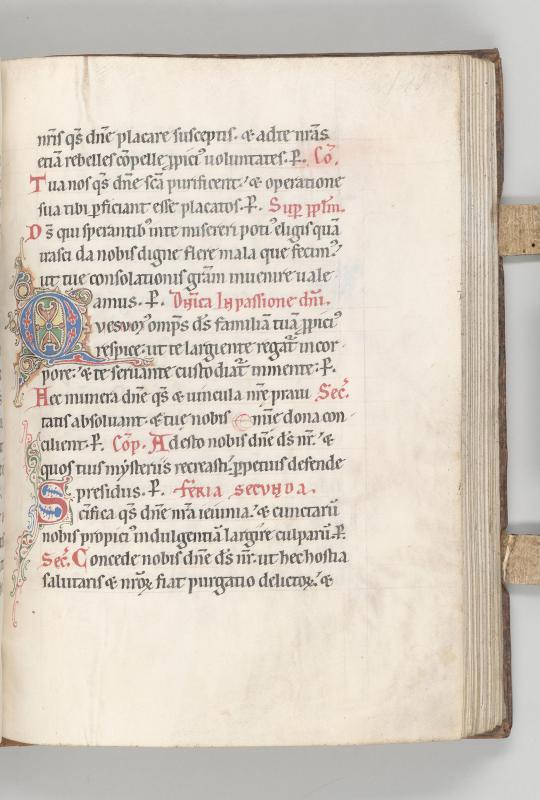 nr̄is q̄s dn̄e placare susceptis. & ad te nr̄as
etiā rebelles cōpelle ꝓpici᷒ uoluntates. P̄. Cō.
Tua nos q̄s dn̄e sc̄a purificent: & operatione
sua tibi ꝑficiant esse placatos. P̄. Sup̄ pp̄lm.
Ds̄ qui sperantib᷒ in te misereri poti᷒ eligis quā
irasci da nobis digne flere mala que fecim᷒:
ut tue consolationis grām inuenire uale
amus. P̄. Dn̄ica In passione dn̄i.
Quesum᷒ omps̄ ds̄ familiā tuā ꝓpici᷒
respice: ut te largiente regat᷑ in cor
pore: & te seruante custodiat᷑ in mente. P̄.
Hec munera dn̄e q̄s & uincula nr̄e praui Sec̄.
tatis absoluant & tue nobis mīe dona con
cilient. P̄. Cōp. Adesto nobis dn̄e ds̄ nr̄: &
quos tuis mysteriis recreasti: ꝑpetuis defende
presidiis. P̄. feria secunda.
Scifica q̄s dn̄e nr̄a ieiunia: & cunctarū
nobis propici᷒ indulgentiā largire culparū. P̄.
Sec̄. Concede nobis dn̄e ds̄ nr̄: ut hec hostia
salutaris & nr̄oꝝ fiat purgatio delictoꝝ: &